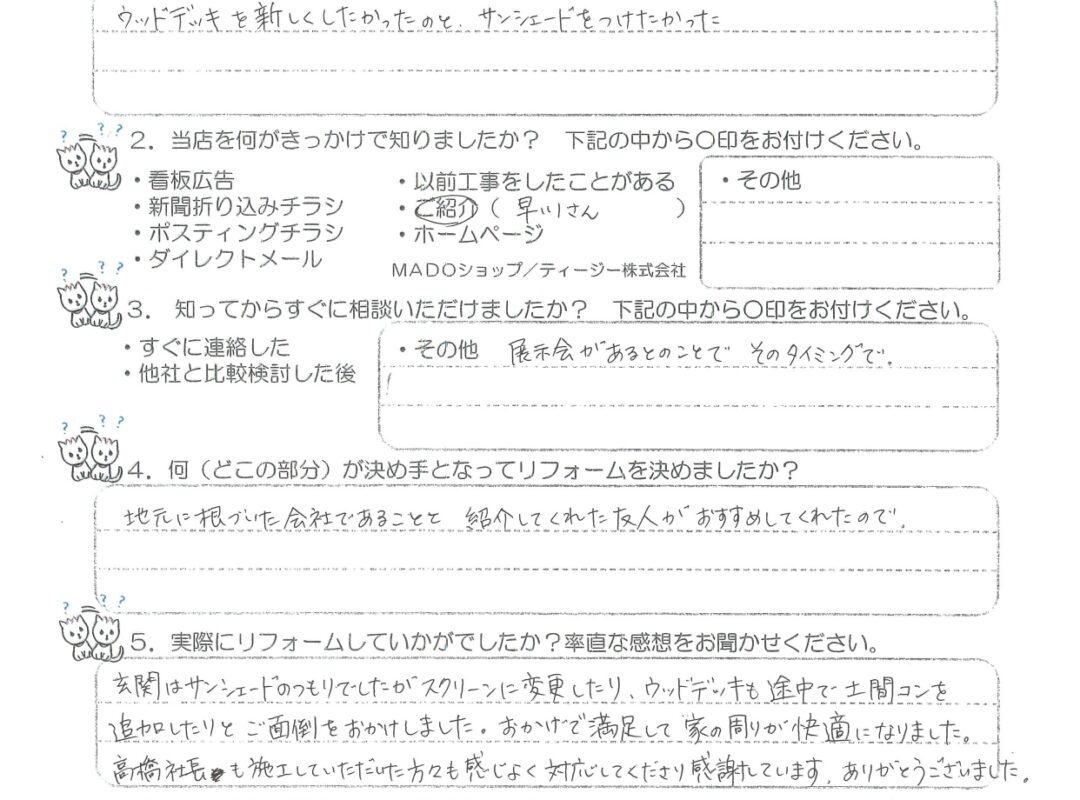 ウッドデッキを新しくしたかったのと、サンシェードをつけたかった
? ? ?
2．当店を何がきっかけで知りましたか？　下記の中から〇印をお付けください。
・看板広告
・新聞折り込みチラシ
・ポスティングチラシ
・ダイレクトメール
・以前工事をしたことがある
・ご紹介（ 早川さん ）
・ホームページ
・その他
MADOショップ／ティージー株式会社
? ? ?
3． 知ってからすぐに相談いただけましたか？　下記の中から〇印をお付けください。
・すぐに連絡した
・他社と比較検討した後
・その他　展示会があるとのことで そのタイミングで。
? ? ?
4．何（どこの部分）が決め手となってリフォームを決めましたか？
地元に根づいた会社であることと 紹介してくれた友人がおすすめしてくれたので。
? ? ?
5．実際にリフォームしていかがでしたか？率直な感想をお聞かせください。
玄関はサンシェードのつもりでしたがスクリーンに変更したり、ウッドデッキも途中で土間コンを
追加したりとご面倒をおかけしました。おかげで満足して家の周りが快適になりました。
高橋社長も施工していただいた方々も感じよく対応してくださり感謝しています。ありがとうございました。